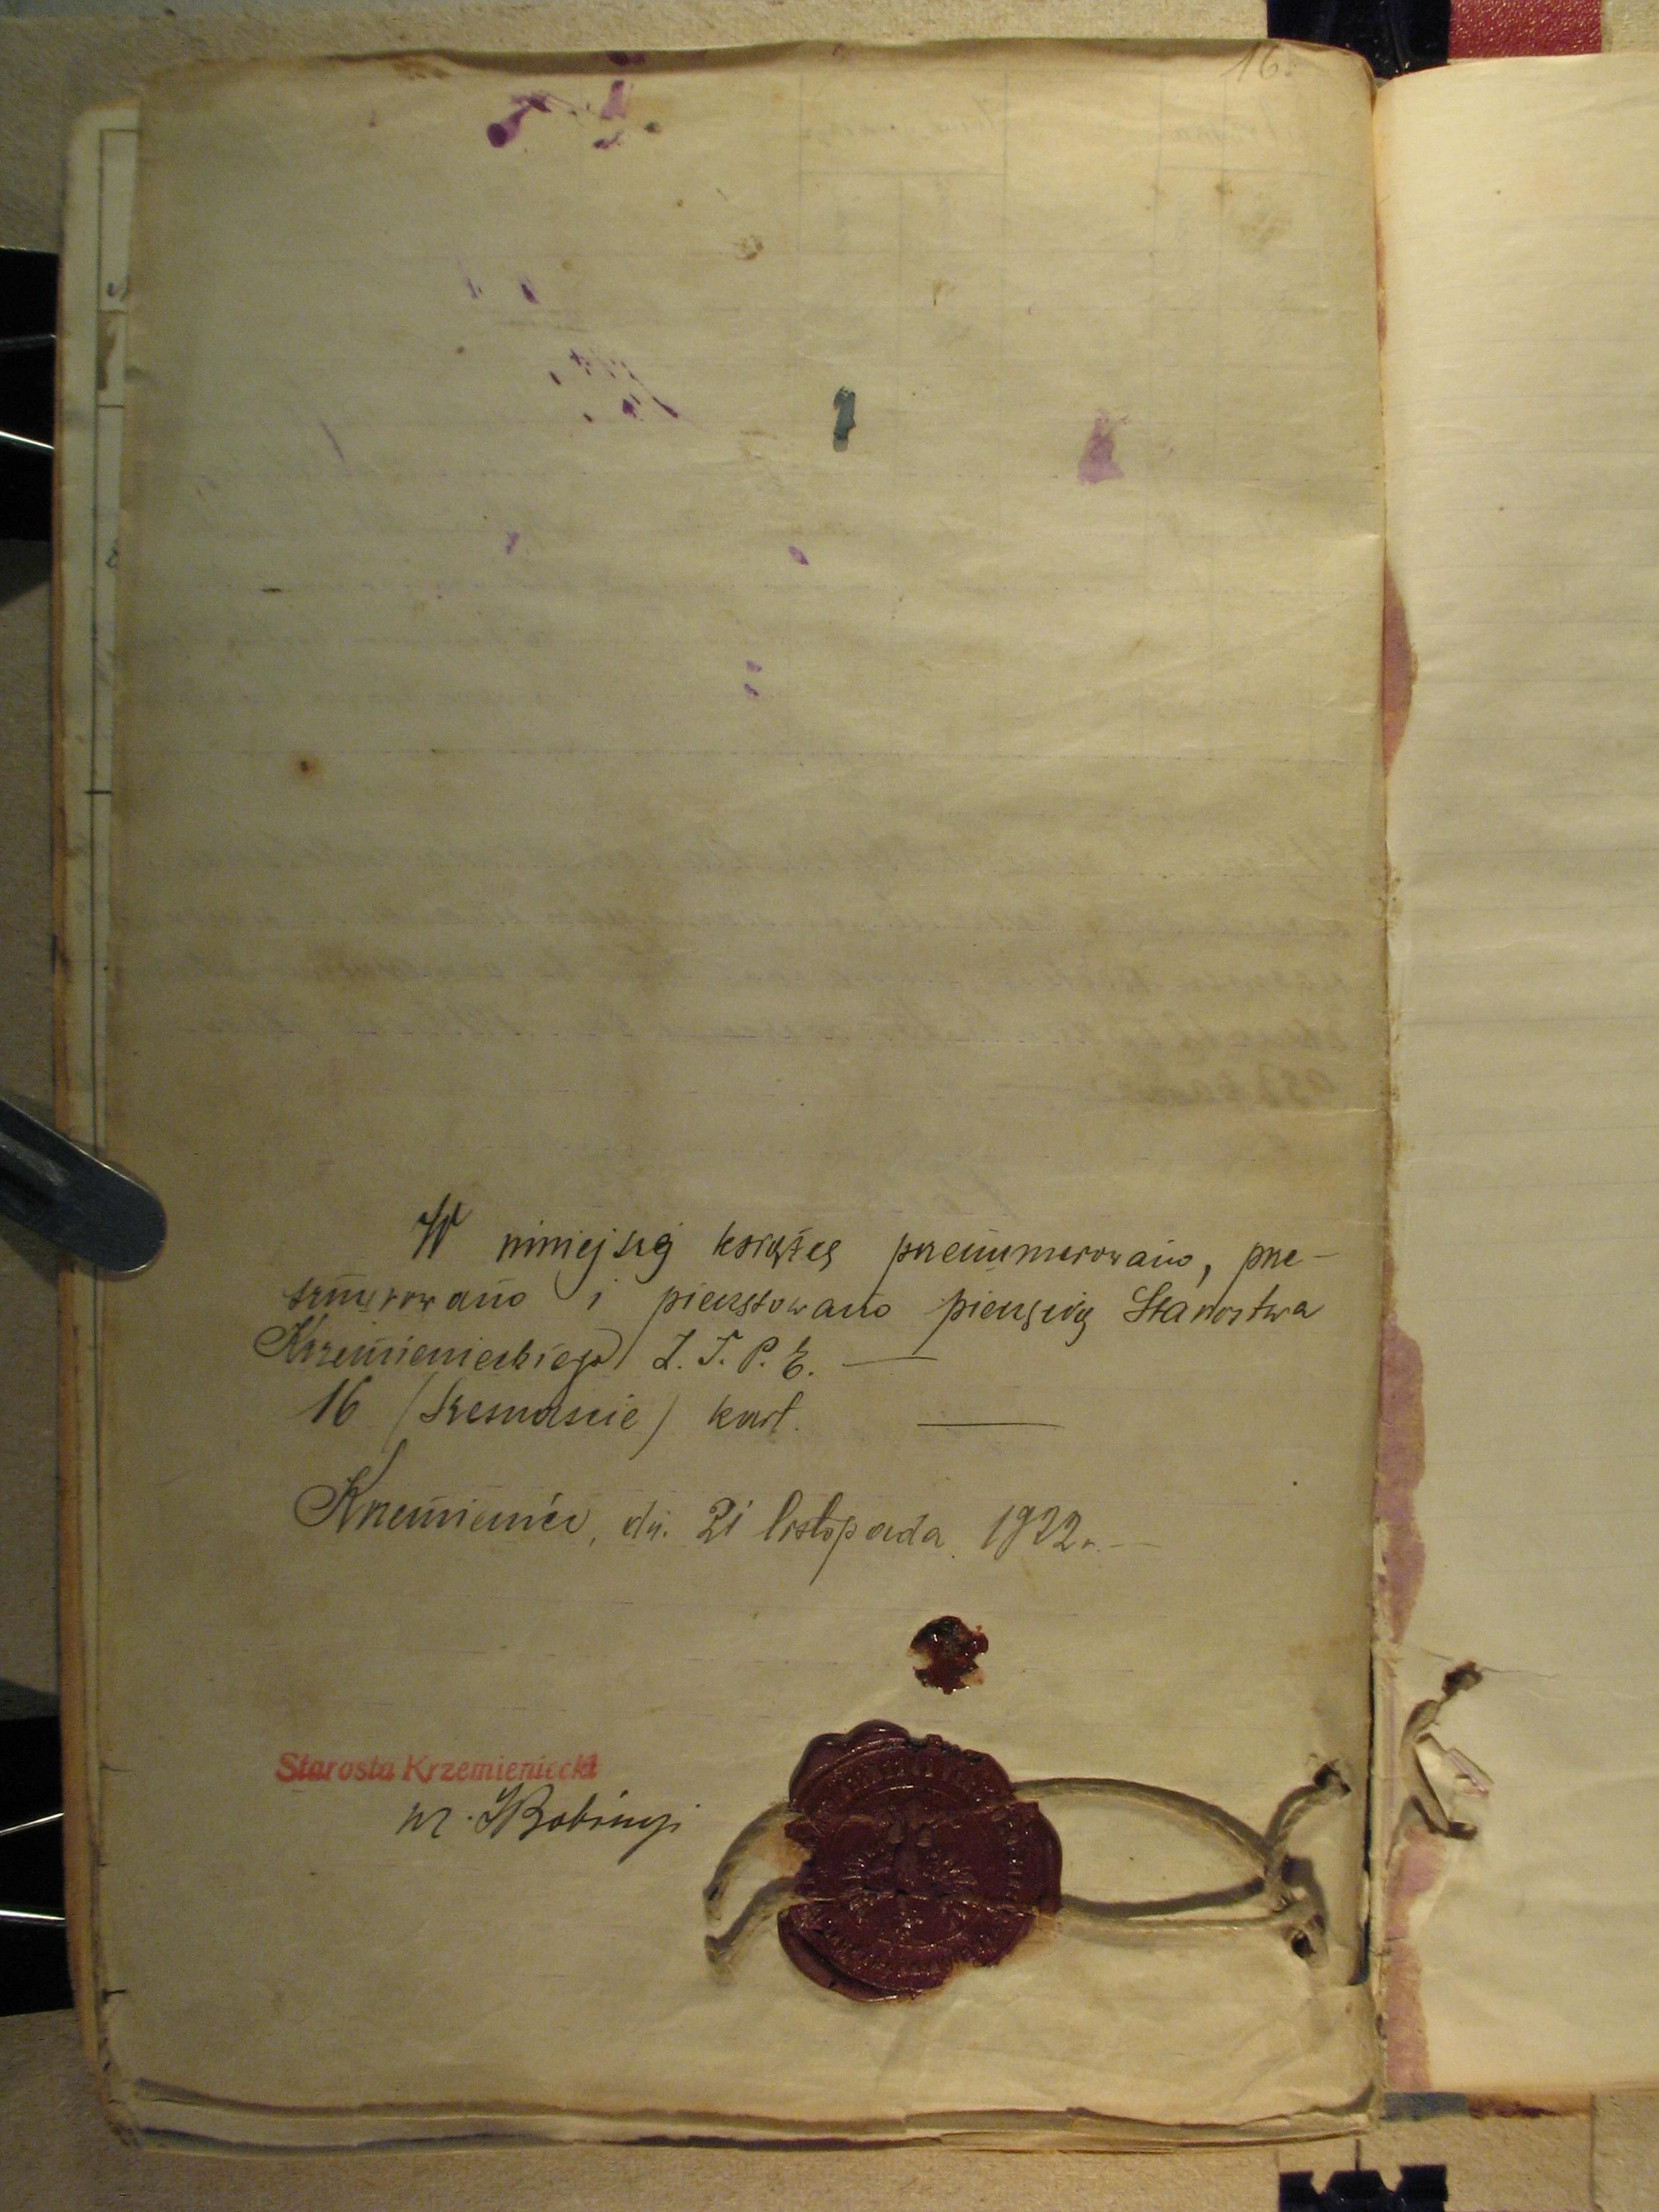 16.
W niniejszej książce przenumerowano, prze-
sznurowano i pieczętowano pieczęcią Starostwa
Krzemienieckiego Z. T. P. E.
16 (szesnaście) kart.
Krzemieniec, dn. 21 listopada 1922 r.
Starosta Krzemieniecki